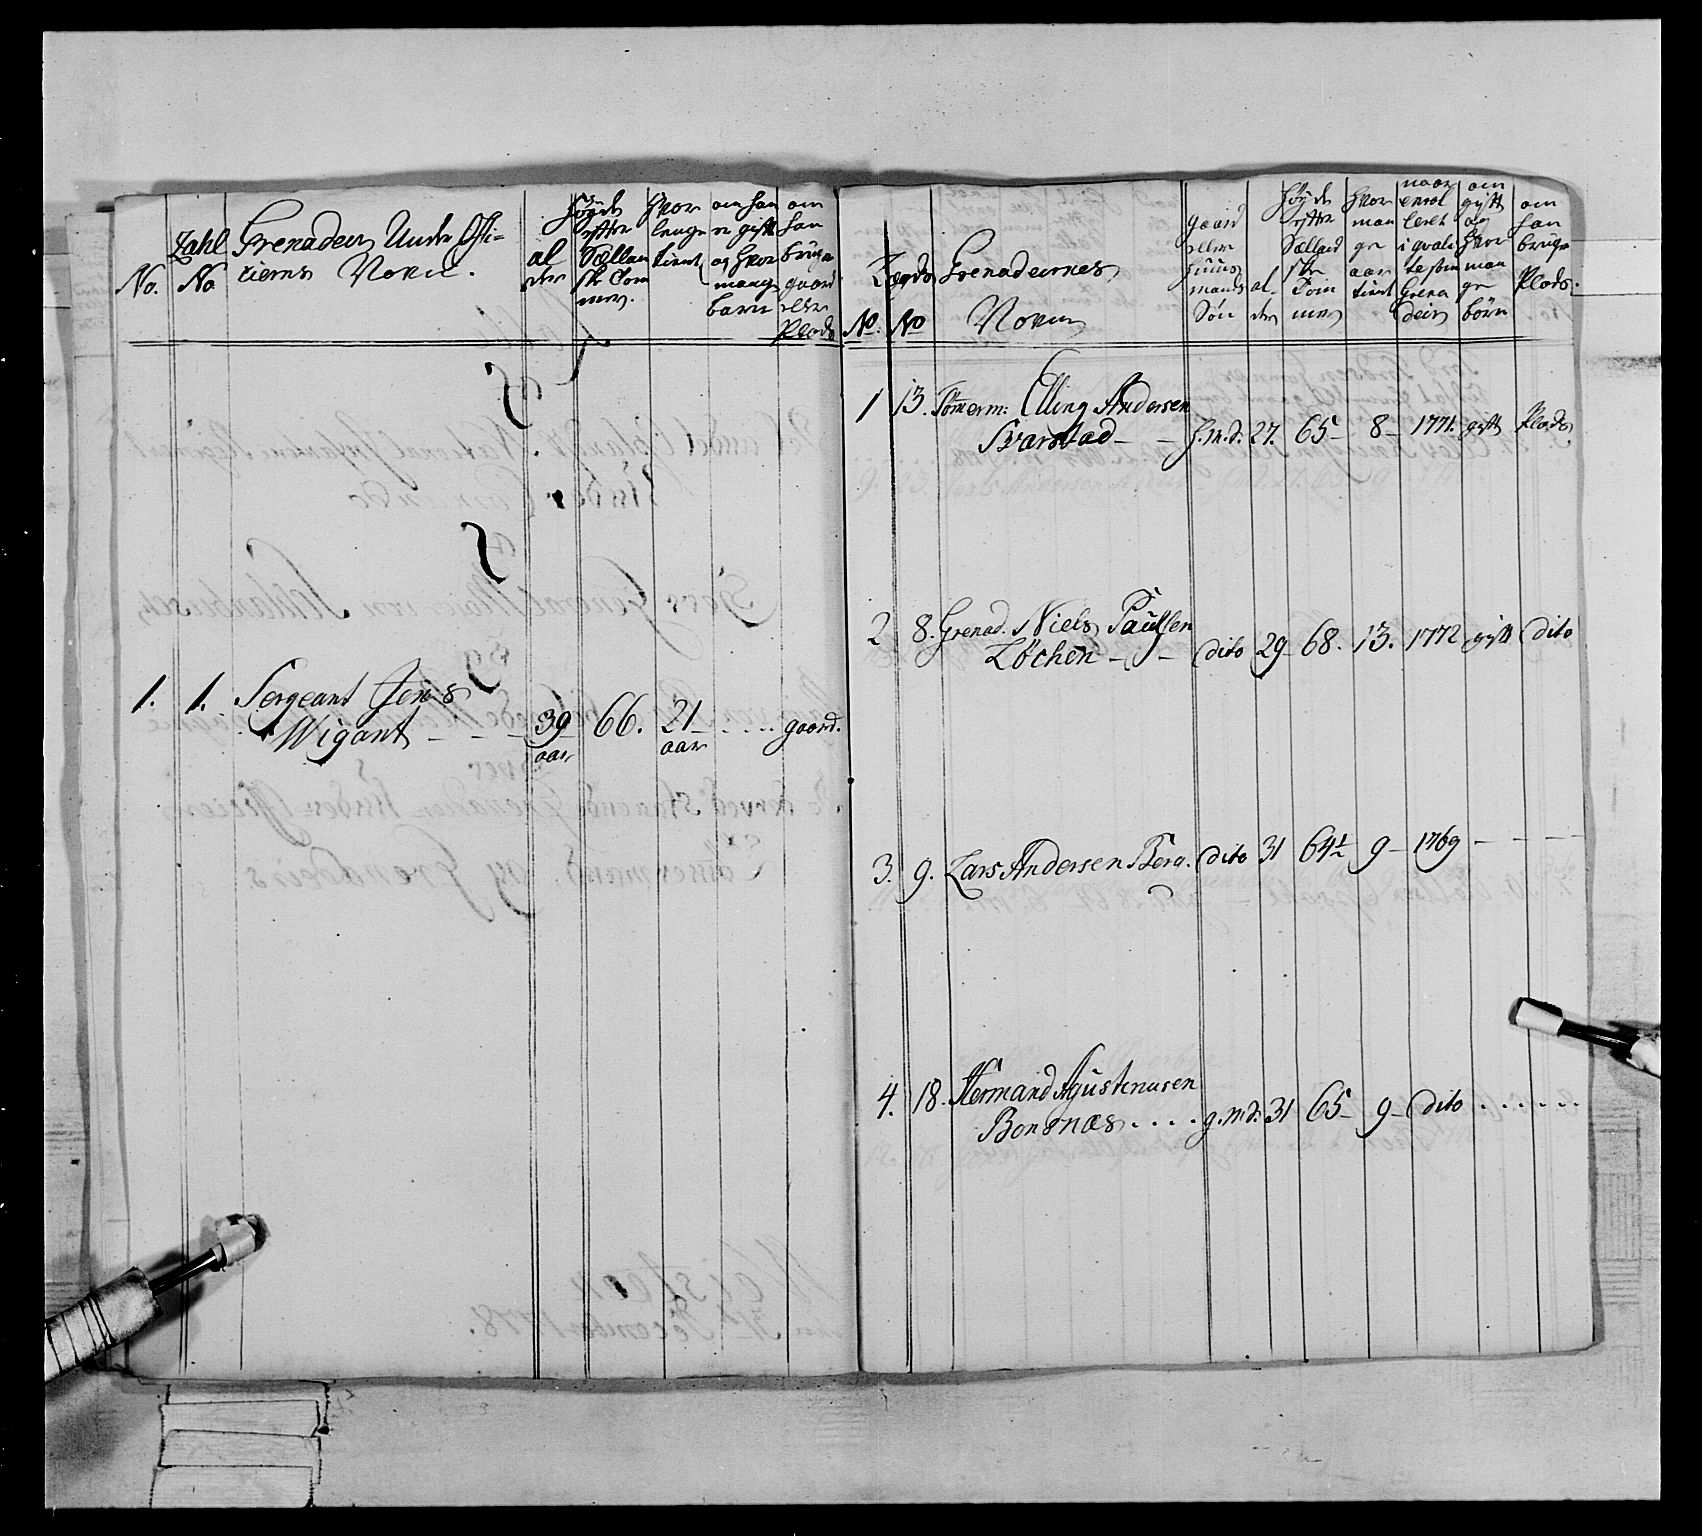 No.
Zahl
No
Grenadeir Under Offi-
cierns Navne.
al
der
Høyde
efter
Sællan
ske Tom
mer.
hvor
lenge
tient
om han
er gift
og hvor
mange
barn
om
han
bruger
gaard
eller
Plads
1. 1. Sergeant Jens
Wigant - - - 39 66. 21 - .... gaard.
aar aar
No.
Lægds
No
Grenadeirnes
Navne
gaard
eller
huus
mands
Søn
al-
der
Høyde
efter
Sælland
ske
Tom
mer
hvor
man
ge
aar
tient
naar
enrol
leret
i qvali
te som
Grena
deir
om
gift
og
hvor
man
ge
børn
om
han
bruger
Plads.
1 13. Tömerm: Elling Andersen
Svarstad - - h.m.d. 27. 65 - 8 - 1771. gift Plads
2 8. Grenad. Niels Paulsen
Løchen - - dito 29 68. 13. 1772 gift dito
3. 9. Lars Andersen Berg. dito 31 64½ 9 - 1769 - - -
4. 18. Hermand Agustinusen
Bonsnæs .... g.m.d. 31 65 - 9 - dito ......